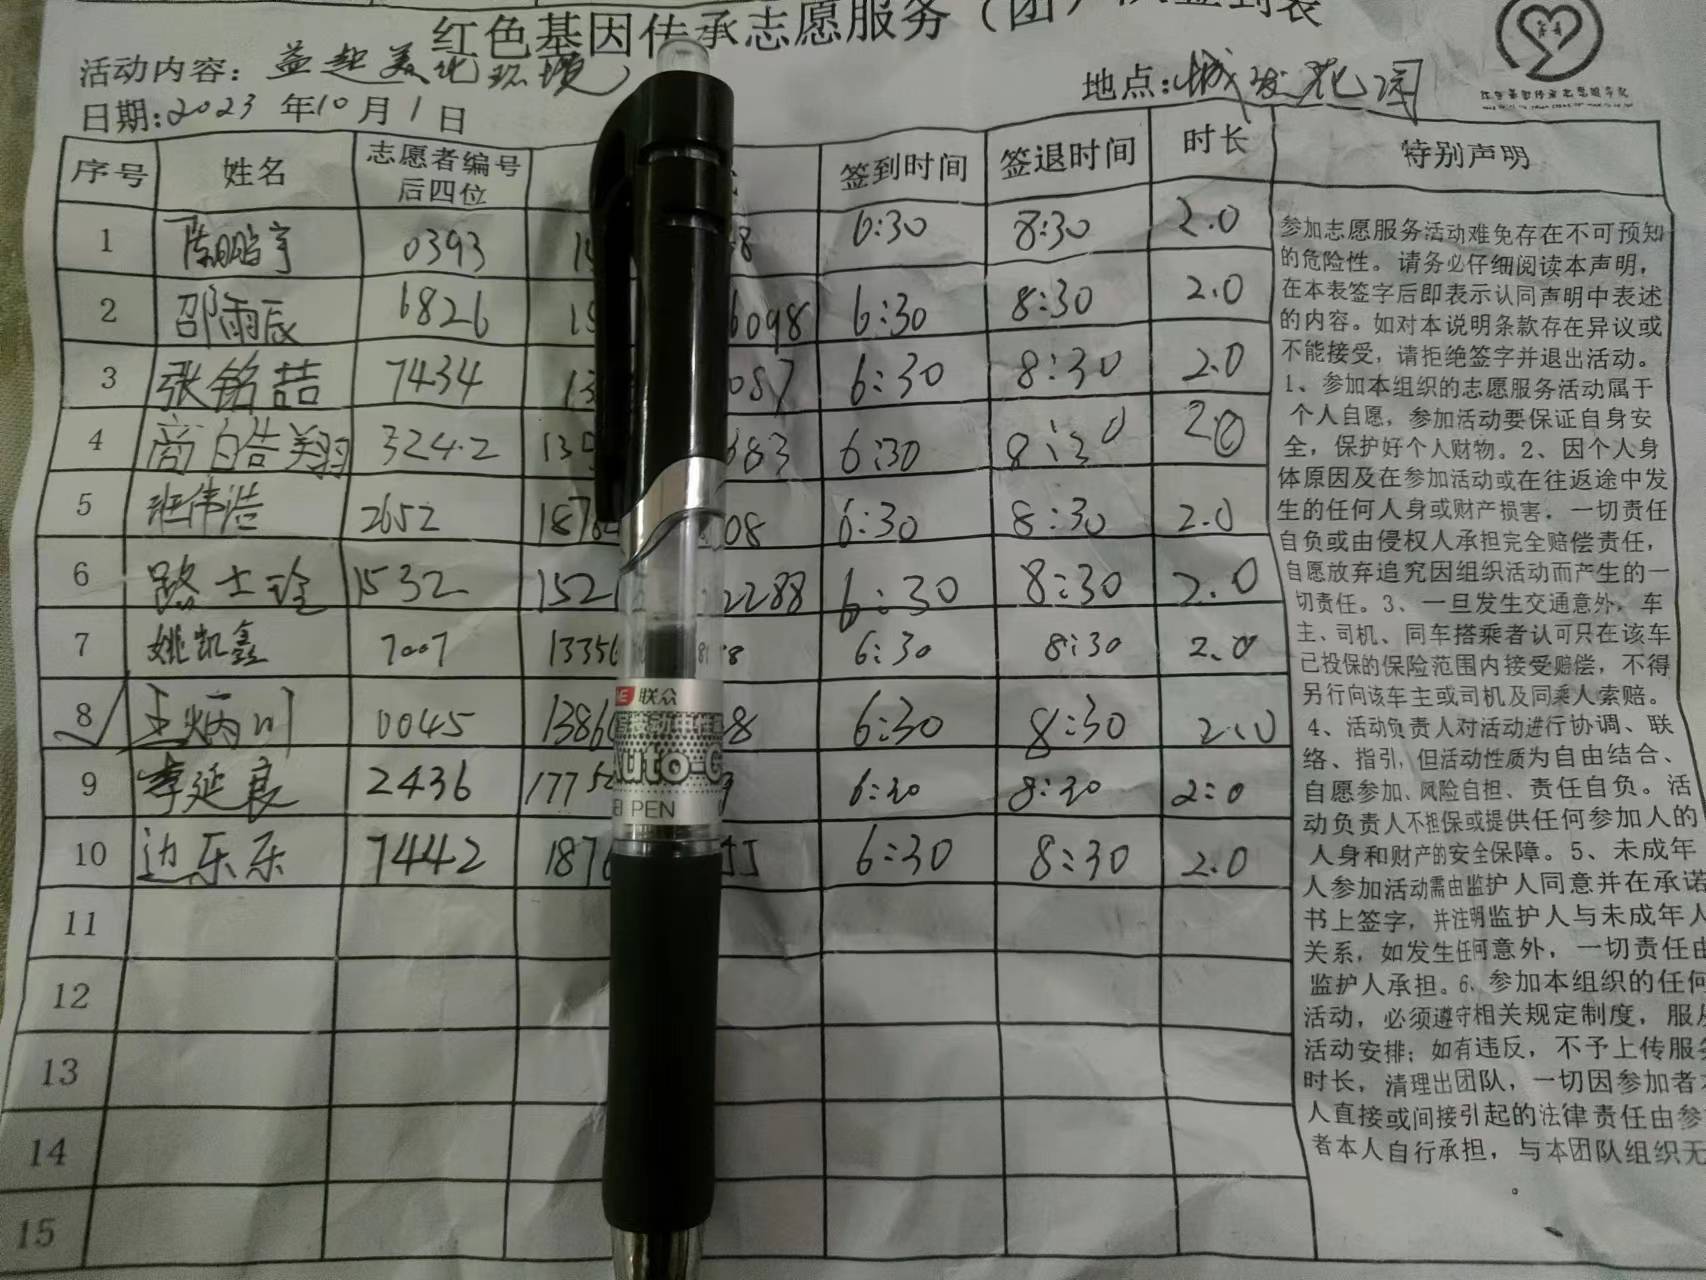 红色基因传承志愿服务（团）队签到表
活动内容：益起美化环境
地点：城发花园
日期：2023年10月1日
序号 姓名 志愿者编号后四位 签到时间 签退时间 时长 特别声明
1 陈鹏宇 0393 6:30 8:30 2.0
2 邵雨辰 6826 6098 6:30 8:30 2.0
3 张铭喆 7434 13 087 6:30 8:30 2.0
4 商皓翔 3242 135 683 6:30 8:30 2.0
5 班伟浩 2652 1876 08 6:30 8:30 2.0
6 路士珍 1532 152 2288 6:30 8:30 2.0
7 姚凯鑫 7007 13356 6:30 8:30 2.0
8 王炳川 0045 1386 8 6:30 8:30 2.0
9 李延良 2436 17752 6:30 8:30 2:0
10 边乐乐 7442 1876 55 6:30 8:30 2.0
11
12
13
14
15
参加志愿服务活动难免存在不可预知
的危险性。请务必仔细阅读本声明，
在本表签字后即表示认同声明中表述
的内容。如对本说明条款存在异议或
不能接受，请拒绝签字并退出活动。
1、参加本组织的志愿服务活动属于
个人自愿，参加活动要保证自身安
全，保护好个人财物。2、因个人身
体原因及在参加活动或在往返途中发
生的任何人身或财产损害，一切责任
自负或由侵权人承担完全赔偿责任，
自愿放弃追究因组织活动而产生的一
切责任。3、一旦发生交通意外，车
主、司机、同车搭乘者认可只在该车
已投保的保险范围内接受赔偿，不得
另行向该车主或司机及同乘人索赔。
4、活动负责人对活动进行协调、联
络、指引，但活动性质为自由结合、
自愿参加、风险自担、责任自负。活
动负责人不担保或提供任何参加人的
人身和财产的安全保障。5、未成年
人参加活动需由监护人同意并在承诺
书上签字，并注明监护人与未成年人
关系，如发生任何意外，一切责任由
监护人承担。6、参加本组织的任何
活动，必须遵守相关规定制度，服从
活动安排；如有违反，不予上传服务
时长，清理出团队，一切因参加者本
人直接或间接引起的法律责任由参
者本人自行承担，与本团队组织无
。
联众
Auto-G
PEN